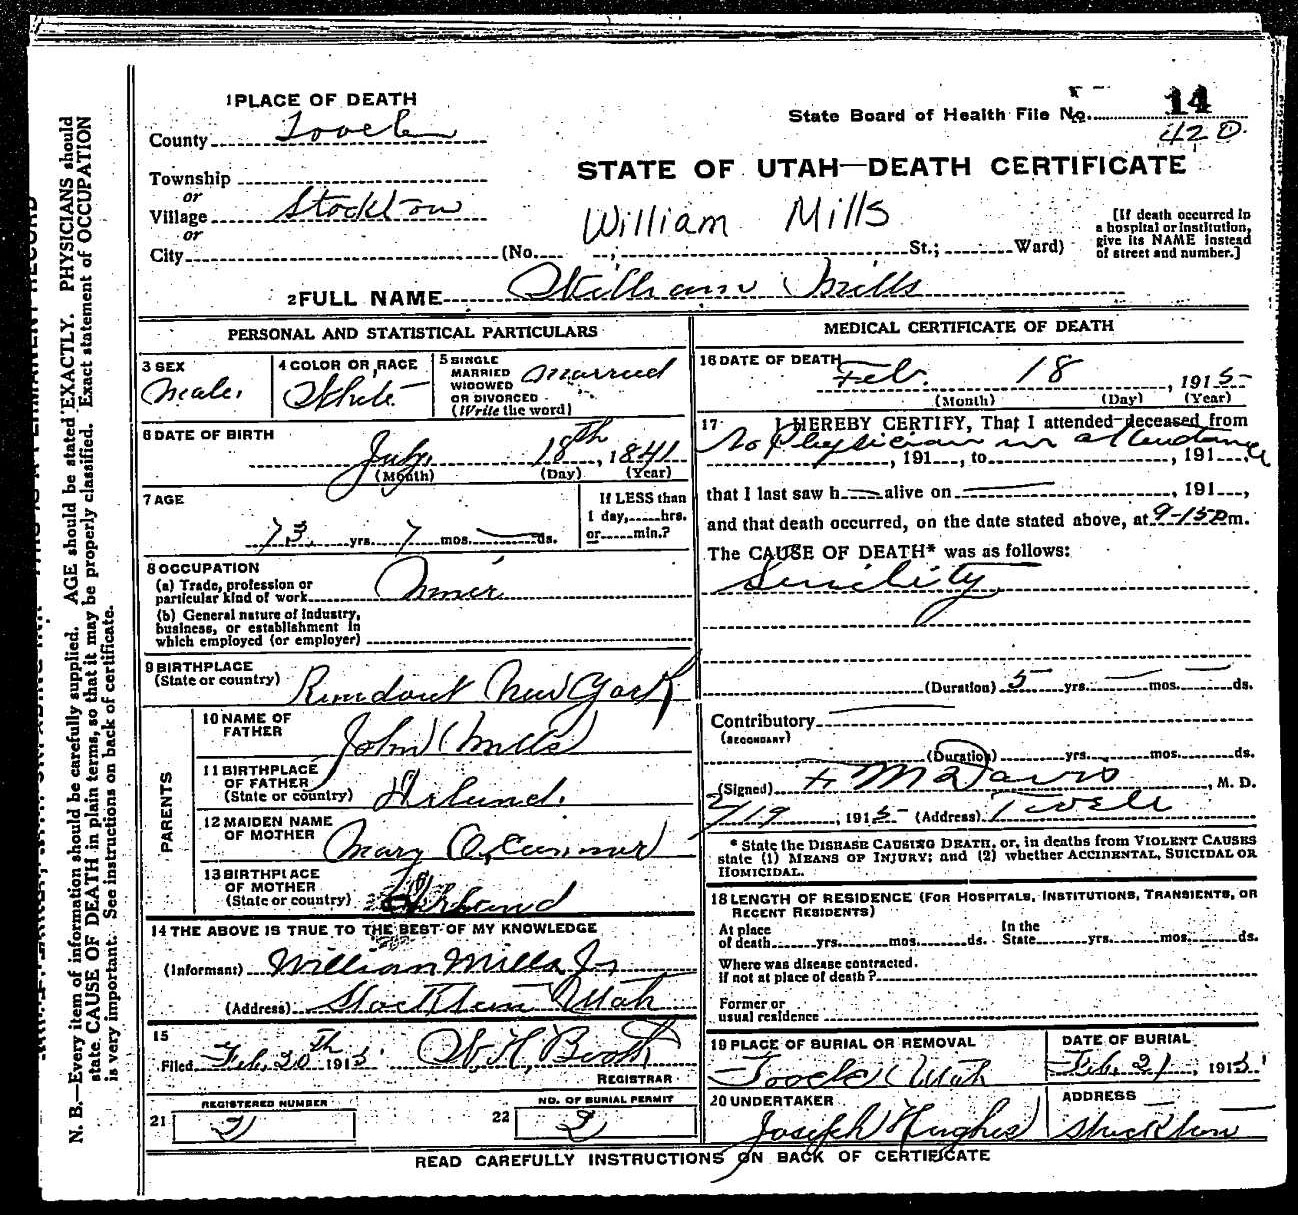 1 PLACE OF DEATH
County Tooele
State Board of Health File No. 14
42 D.
STATE OF UTAH—DEATH CERTIFICATE
Township
or
Village Stockton
or
City (No. ; St.; Ward)
William Mills
[If death occurred in
a hospital or institution,
give its NAME instead
of street and number.]
2 FULL NAME William Mills
PERSONAL AND STATISTICAL PARTICULARS
3 SEX
Male.
4 COLOR OR RACE
White
5 SINGLE
MARRIED
WIDOWED
OR DIVORCED
(Write the word)
Married
6 DATE OF BIRTH
July 18th, 1841
(Month) (Day) (Year)
7 AGE
73 yrs. 7 mos. ds.
If LESS than
1 day, hrs.
or min.?
8 OCCUPATION
(a) Trade, profession or
particular kind of work Miner
(b) General nature of industry,
business, or establishment in
which employed (or employer)
9 BIRTHPLACE
(State or country) Rondout New York
PARENTS
10 NAME OF
FATHER John Mills
11 BIRTHPLACE
OF FATHER
(State or country) Irland.
12 MAIDEN NAME
OF MOTHER Mary
13 BIRTHPLACE
OF MOTHER
(State or country) Irland
14 THE ABOVE IS TRUE TO THE BEST OF MY KNOWLEDGE
(Informant) William Mills Jr
(Address) Stockton Utah
15
Filed Feb. 20th 1915 W. H. Booth
REGISTRAR
REGISTERED NUMBER
21 2
NO. OF BURIAL PERMIT
22 2
MEDICAL CERTIFICATE OF DEATH
16 DATE OF DEATH
Feb. 18, 1915
(Month) (Day) (Year)
17 I HEREBY CERTIFY, That I attended deceased from
No Physician in attendance
, 191 , to , 191 ,
that I last saw h alive on , 191 ,
and that death occurred, on the date stated above, at 9-15 P m.
The CAUSE OF DEATH* was as follows:
Senility
(Duration) 5 yrs. mos. ds.
Contributory
(SECONDARY)
(Duration) yrs. mos. ds.
(Signed) F M Davis, M. D.
2/19, 1915 (Address) Tooele
* State the DISEASE CAUSING DEATH, or, in deaths from VIOLENT CAUSES
state (1) MEANS OF INJURY; and (2) whether ACCIDENTAL, SUICIDAL OR
HOMICIDAL.
18 LENGTH OF RESIDENCE (FOR HOSPITALS, INSTITUTIONS, TRANSIENTS, OR
RECENT RESIDENTS)
At place
of death yrs. mos. ds.
In the
State yrs. mos. ds.
Where was disease contracted.
if not at place of death?
Former or
usual residence
19 PLACE OF BURIAL OR REMOVAL
Tooele Utah
DATE OF BURIAL
Feb. 21, 1915
20 UNDERTAKER
Joseph Hughes
ADDRESS
Stockton
READ CAREFULLY INSTRUCTIONS ON BACK OF CERTIFICATE
N. B.—Every item of information should be carefully supplied. AGE should be stated EXACTLY. PHYSICIANS should
state CAUSE OF DEATH in plain terms, so that it may be properly classified. Exact statement of OCCUPATION
is very important. See instructions on back of certificate.